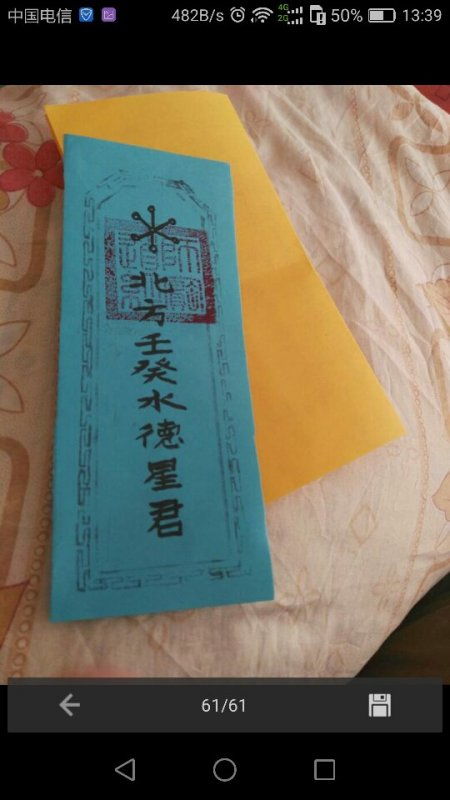 中国电信
482B/s
4G
2G
50%
13:39
北方壬癸水德星君
61/61